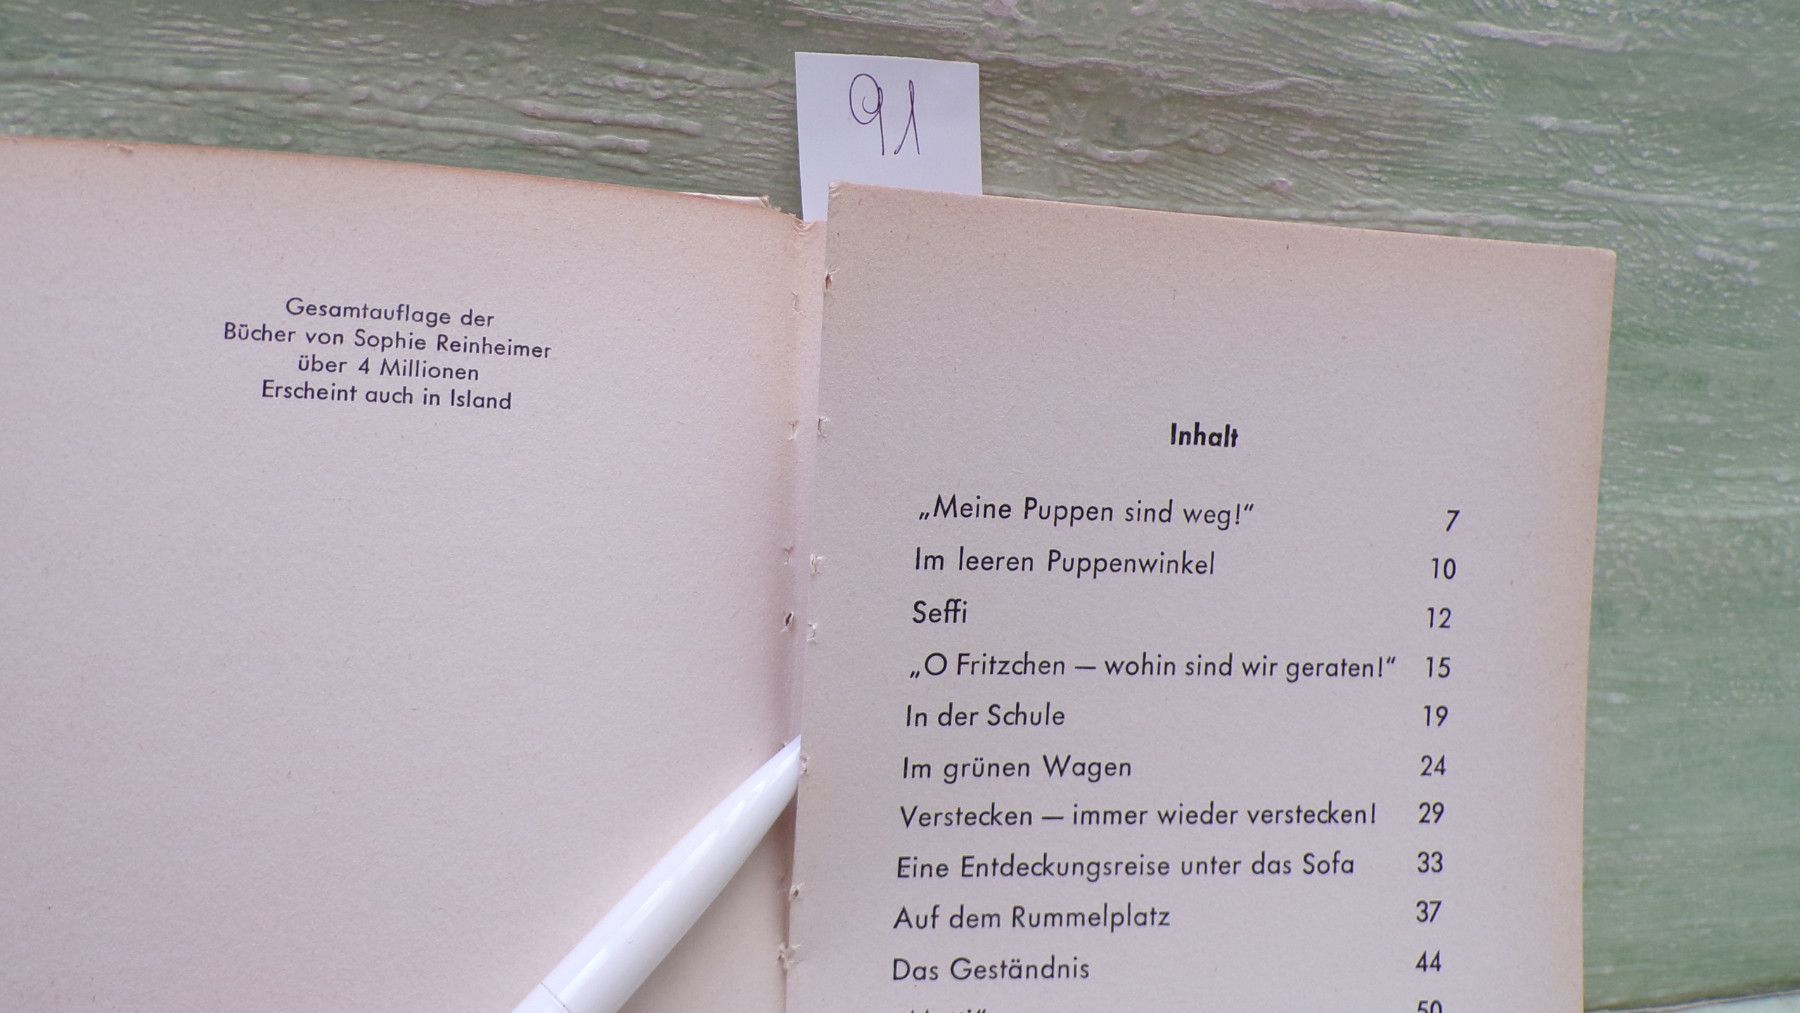 91
Gesamtauflage der
Bücher von Sophie Reinheimer
über 4 Millionen
Erscheint auch in Island
Inhalt
„Meine Puppen sind weg!“ 7
Im leeren Puppenwinkel 10
Seffi 12
„O Fritzchen — wohin sind wir geraten!“ 15
In der Schule 19
Im grünen Wagen 24
Verstecken — immer wieder verstecken! 29
Eine Entdeckungsreise unter das Sofa 33
Auf dem Rummelplatz 37
Das Geständnis 44
50